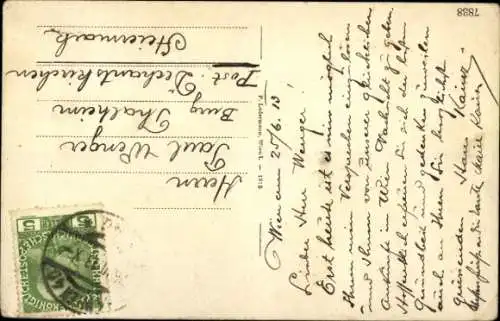 7838
Wien am 25/6. 13
Lieber Herr Wenger!
Erst heute ist es mir möglich
Ihnen mein Versprechen einzulösen
und Ihnen von unserer glücklichen
Ankunft in Wien Nachricht zu geben.
Hoffentlich erfreuen Sie sich der besten
Gesundheit und gedenken zuweilen
auch an Ihren Sie herzlichst
grüssenden
Hans Kaiser
F. Ledermann, Wien I. — 1913
Herrn
Paul Wenger
Burg Thalheim
Post. Dechantskirchen
Steiermark
5 5